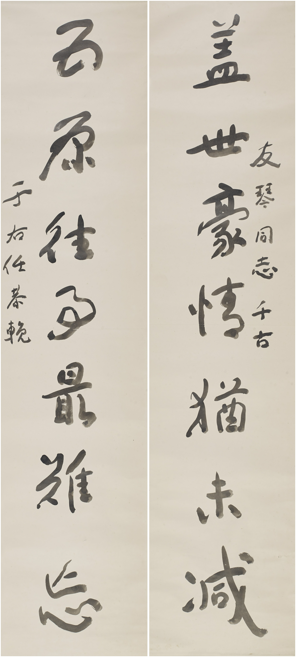 友琴同志千古
盖世豪情猶未減
五原往事最難忘
于右任恭輓